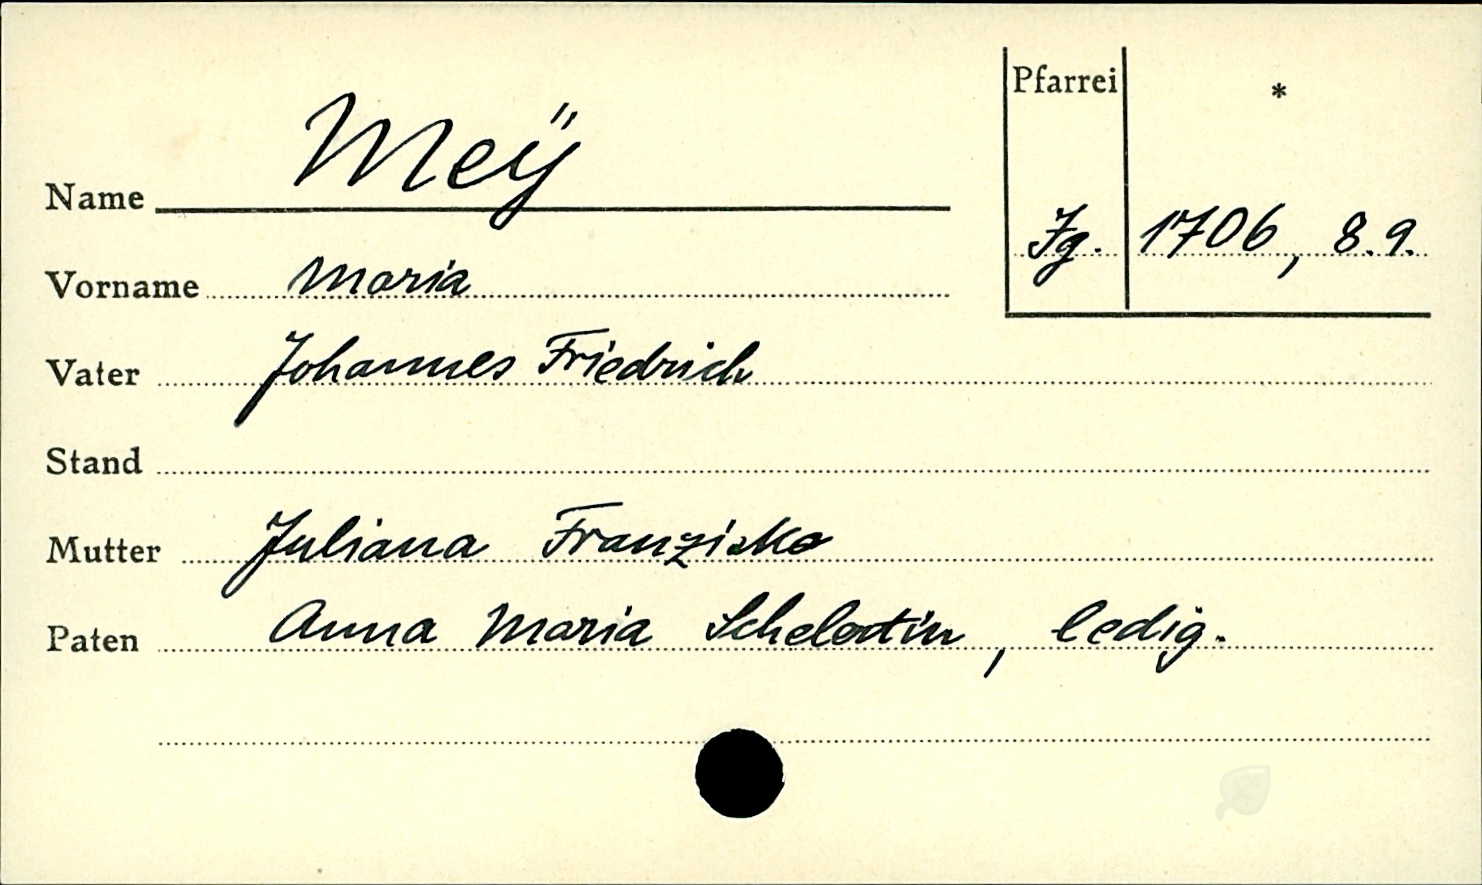 Pfarrei *
Name Meÿ
Jg. 1706, 8.9.
Vorname Maria
Vater Johannes Friedrich
Stand
Mutter Juliana Franziska
Paten Anna Maria, ledig.